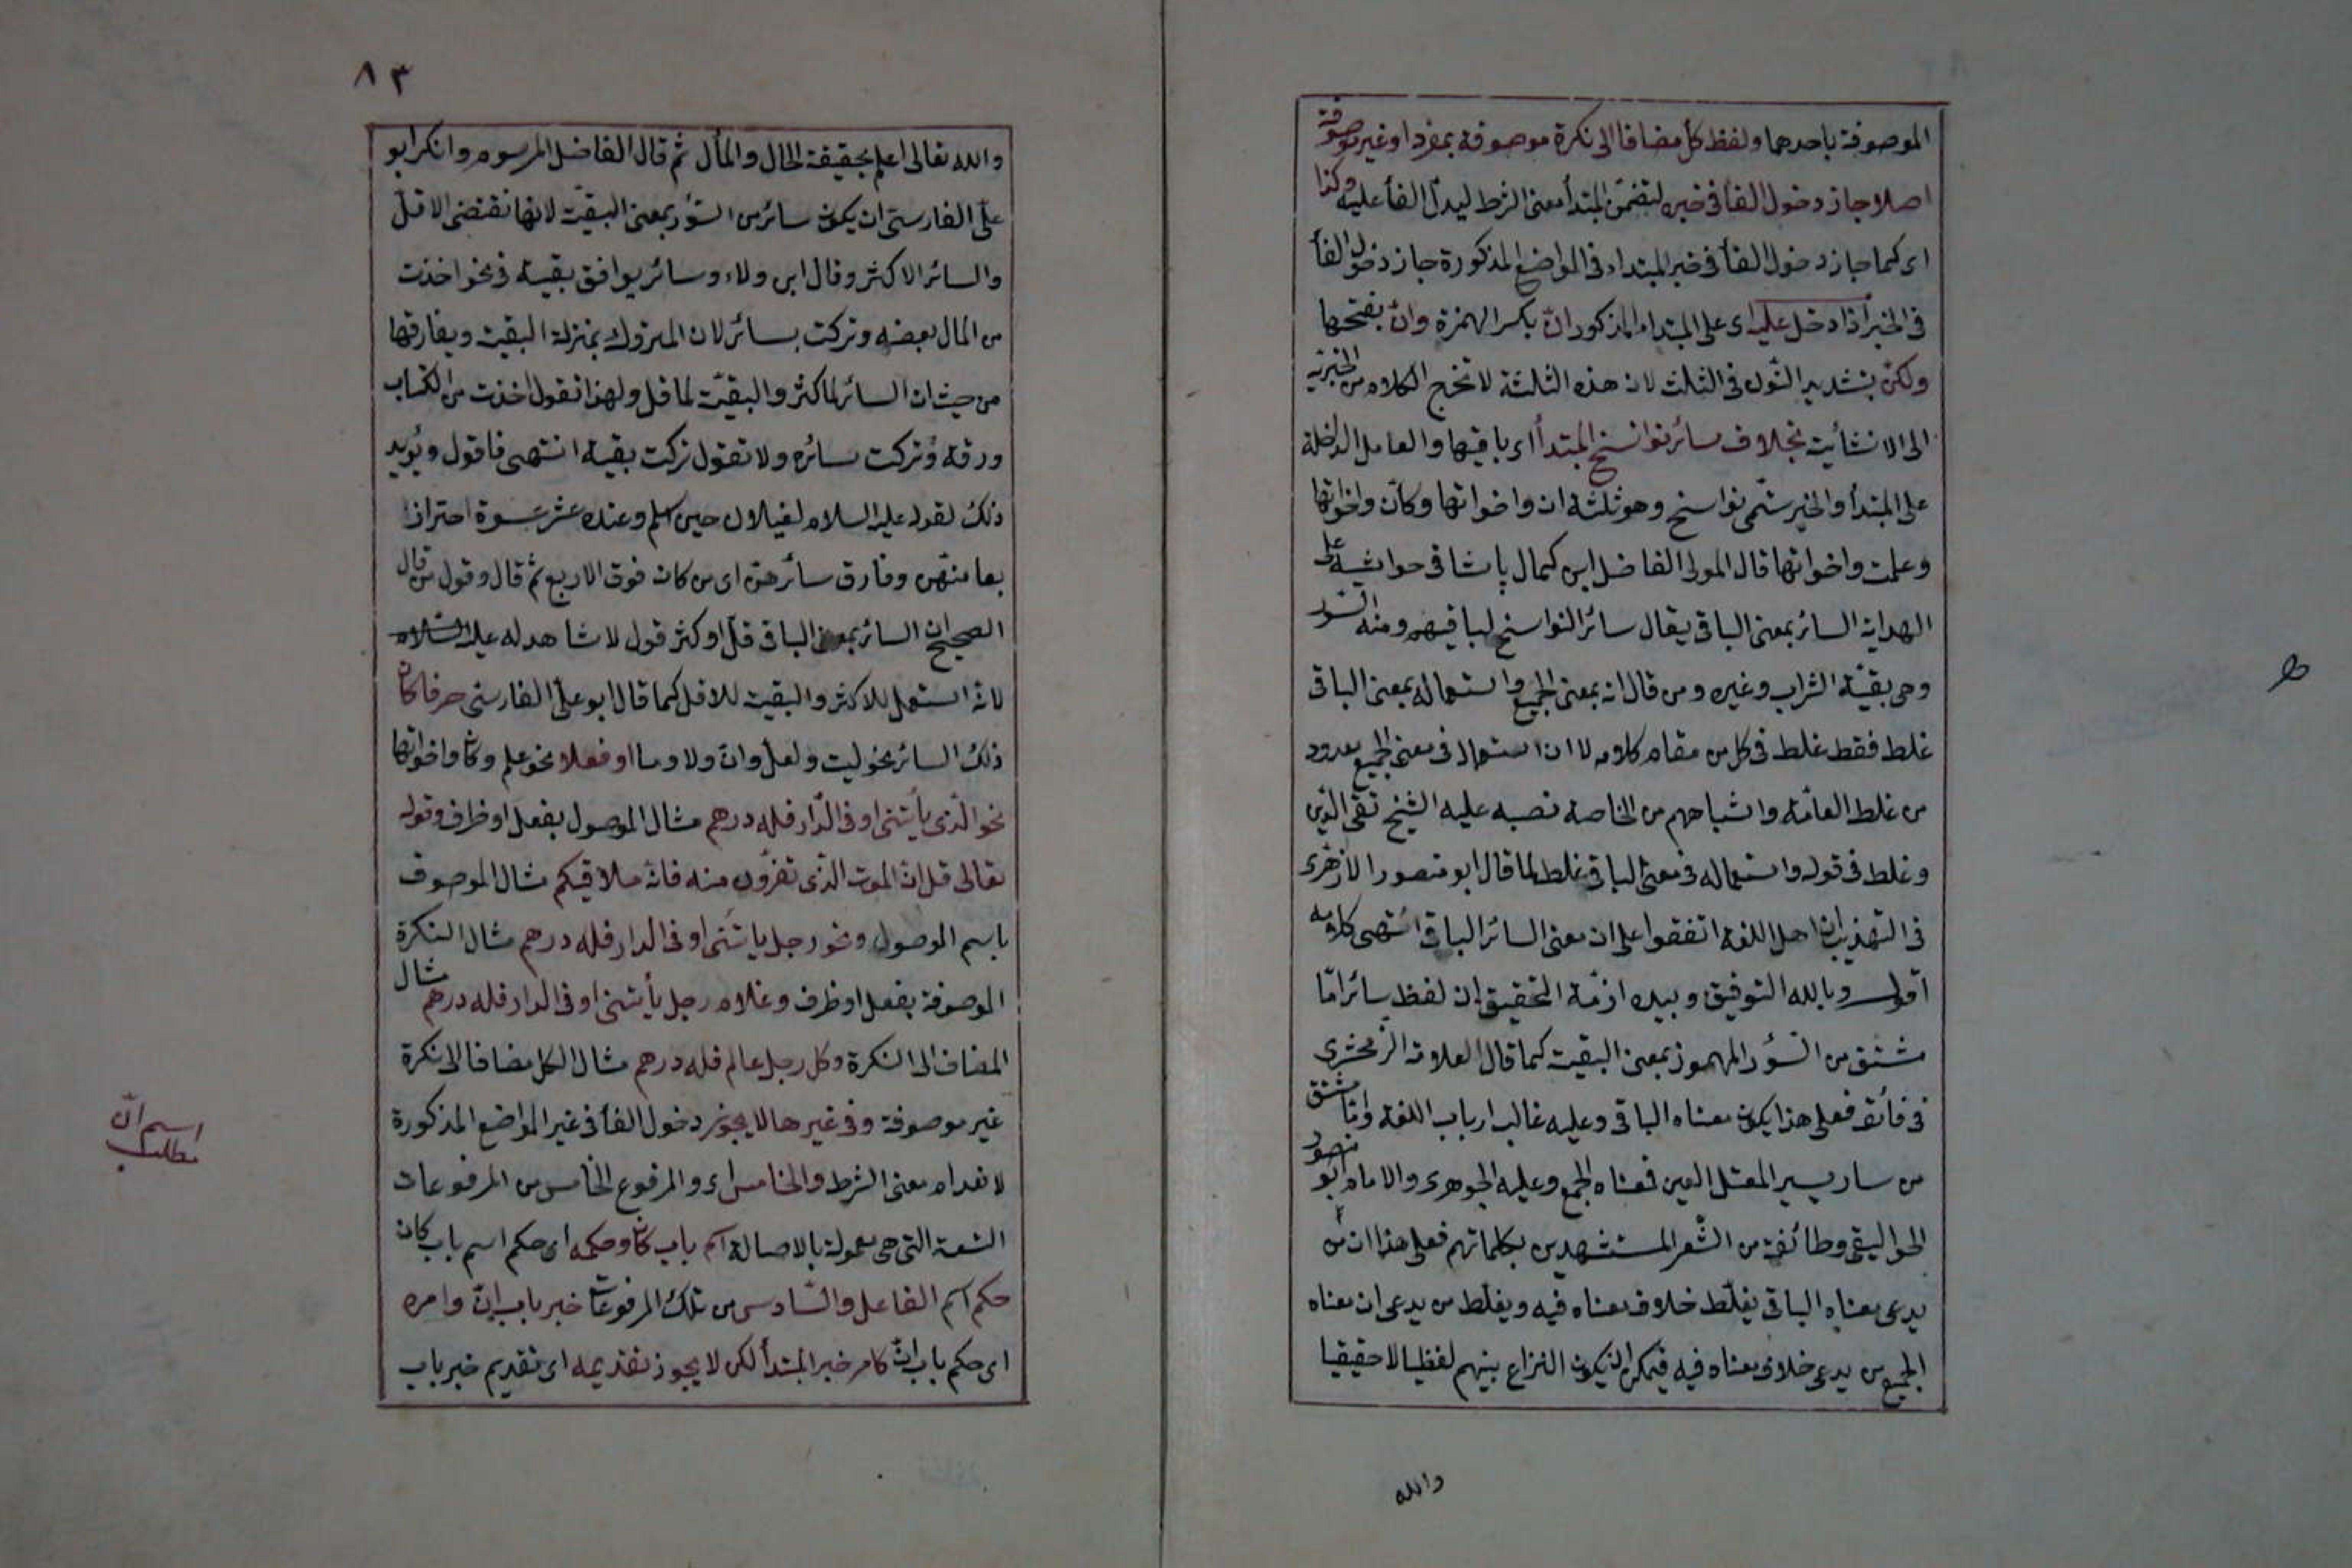 الموصوفة باحدهما ولفظ كل مضافا الى نكرة موصوفة بمفرد او غير موصوفة
اصلا جاز دخول الفأ فى خبره لتضمن المبتدأ معنى الشرط ليدل الفأ عليه وكذا
اى كما جاز دخول الفأ فى خبر المبتداء فى المواضع المذكورة جاز دخول الفأ
فى الخبر اذا دخل عليه اى على المبتداء المذكور انّ بكسر الهمزة وانّ بفتحها
ولكنّ بتشديد النّون فى الثلث لان هذه الثلثة لا تخرج الكلام من الخبرية
الى الانشأئيت بخلاف سائر نواسخ المبتدأ اى باقيها والعامل الداخلة
على المبتدأ والخبر سمّى نواسخ وهو ثلثة ان واخواتها وكان واخواتها
وعلمت واخواتها قال المولى الفاضل ابن كمال پاشا فى حواشيه على
الهداية السائر بمعنى الباقى يقال سائر النواسخ لباقيهم ومنه السّور
وهى بقيّة الشراب وغيره ومن قال انه بمعنى الجميع واستعماله بمعنى الباقى
غلط فقط غلط فى كل من مقام كلامه لا ان استعمال فى معنى الجميع معدود
من غلط العامّة واشباههم من الخاصة نصبه عليه الشيخ تقى الدّين
وغلط فى قوله واستعماله فى معنى الباقى غلط لما قال ابو منصور الازهرى
فى التهذيب ان اهل اللغة اتفقوا على ان معنى السائر الباقى انتهى كلامه
اقول وبالله التوفيق وبيده ازمّة التحقيق ان لفظ سائر امّا
مشتق من السؤر المهموز بمعنى البقيت كما قال العلامة الزمخشرى
فى فائقه فعلى هذا يكون معناه الباقى وعليه غالب ارباب اللغة وامّا مشتق
من سار يسير المعتل العين فمعناه الجمع وعليه الجوهرى والامام ابو منصور
الجواليقى وطائفة من الشّعر المستشهدين بكلماتهم فعلى هذا ان من
يدعى معناه الباقى يغلّط خلاف معناه فيه ويغلّط من يدعى ان معناه
الجميع من يدعى خلاف معناه فيه فيمكن ان يكون النزاع بينهم لفظيا لا حقيقيا
والله
٨٣
والله تعالى اعلم بحقيقة الحال والمأل ثم قال الفاضل المرسوم وانكر ابو
علّى الفارسى ان يكون سائر من السّؤر بمعنى البقيّت لانها تقتضى الاقلّ
والسائر الاكثر وقال ابن ولاء وسائر يوافق بقية فى نحو اخذت
من المال بعضه وتركت سائر لان المتروك بمنزلة البقيت ويفارقها
من حيث ان السائر لما كثر والبقيّت لما قل ولهذا تقول اخذت من الكتاب
ورقة وتركت سائره ولا تقول تركت بقية انتهى فاقول ويؤيد
ذلك لقوله عليه السلام لغيلان حين اسلم وعنده عشر نسوة اختر اربعا
بعا منهّن وفارق سائرهنّ اى من كان فوق الاربع ثم قال وقول من قال
الصحيح ان السائر بمعنى الباقى قلّ او كثر قول لا شاهد له عليه السلام
لانه استعمل للاكثر والبقيت للاقل كما قال ابو علّى الفارسى حرفا كان
ذلك السائر نحو ليت ولعل وانّ ولا وما او فعلا نحو علم وكان واخواتها
نحو الّذى يأتينى او فى الدّار فله درهم مثال الموصول بفعل او ظرف وقوله
تعالى قل انّ الموت الّذى تفرّون منه فانّه ملاقيكم مثال الموصوف
باسم الموصول ونحو رجل يأتينى او فى الدار فله درهم مثال النكرة
الموصوفة بفعل او ظرف وغلام رجل يأتينى او فى الدار فله درهم مثال
المضاف الى النكرة وكل رجل عالم فله درهم مثال الكل مضافا الى نكرة
غير موصوفة وفى غيرها لا يجوز دخول الفأ فى غير المواضع المذكورة
لانعدام معنى الشرط والخامس اى والمرفوع الخامس من المرفوعات
التسعة التى هى معمولة بالاصالة اسم باب كان وحكمه اى حكم اسم باب كان
حكم اسم الفاعل والسّادس من تلك المرفوعات خبر باب انّ وامره
اى حكم باب انّ كامر خبر المبتدأ لكن لا يجوز تقديمه اى تقديم خبر باب
اسم انّ
مطلب